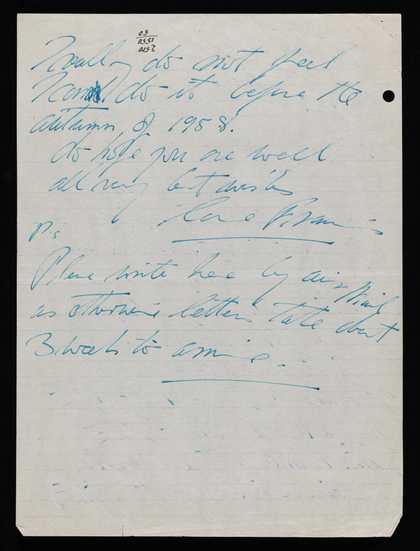 really do not feel
I can do it before the
autumn of 1958.
do hope you are well
all very best wishes
Francis
Ps
Please write here by air Mail
as otherwise letters take about
3 weeks to arrive.